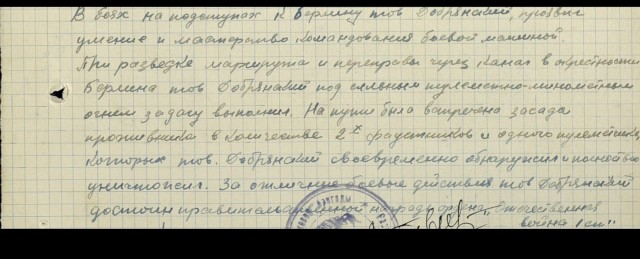 В боях на подступах к Берлину тов Добрянский, проявил
умение и мастерство командования боевой машиной.
При разведке маршрута и переправы через канал в окрестностях
Берлина тов Добрянский под сильным пулеметно-минометным
огнем задачу выполнил. На пути была встречена засада
противника в количестве 2х фаустников и одного пулеметчика,
которых тов. Добрянский своевременно обнаружил и
уничтожил. За отличные боевые действия тов Добрянский
достоин правительственной награды ордена "Отечественная
война 1 ст"